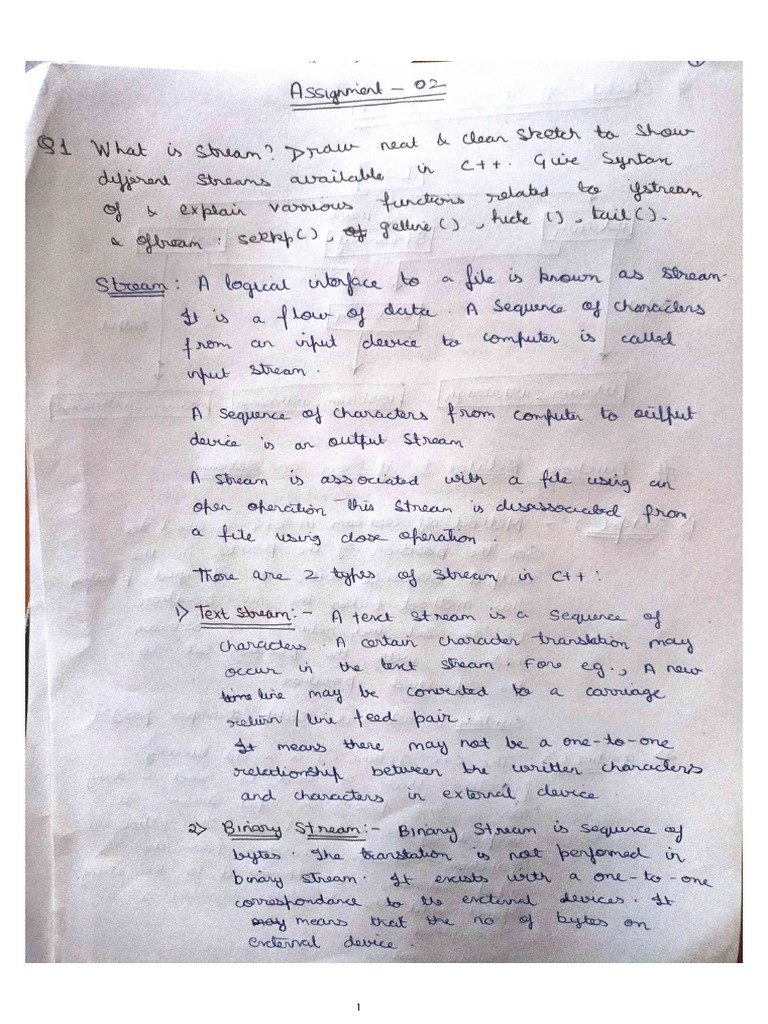 Assignment - 02
Q1 What is stream? Draw neat & clean sketch to show
different streams available in C++. Give Syntan
of & explain varrious functions related to ifstream
& ofstream : seekp(), getline(), , tail().
Stream : A logical interface to a file is known as stream.
It is a flow of data. A sequence of characters
from an input device to computer is called
input stream.
A sequence of characters from computer to output
device is an output stream
A stream is associated with a file using an
open operation This stream is disassociated from
a file using close operation.
There are 2 types of stream in C++ :
1) Text Stream:- A text stream is a sequence of
characters. A certain character translation may
occur in the text stream. Fore eg., A new
line may be converted to a carriage
return / line feed pair.
It means there may not be a one-to-one
relationship between the written characters
and characters in external device.
2) Binary Stream:- Binary Stream is sequence of
bytes. The translation is not performed in
binary stream. It exists with a one-to-one
correspondance to the external devices. It
means that the no of bytes on
external device.
1